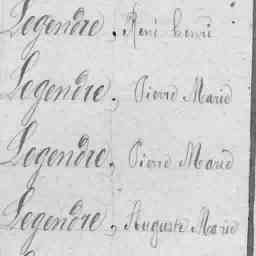 Legendre, René henri
Legendre, Pierre Marie
Legendre, Pierre Marie
Legendre, Auguste Marie